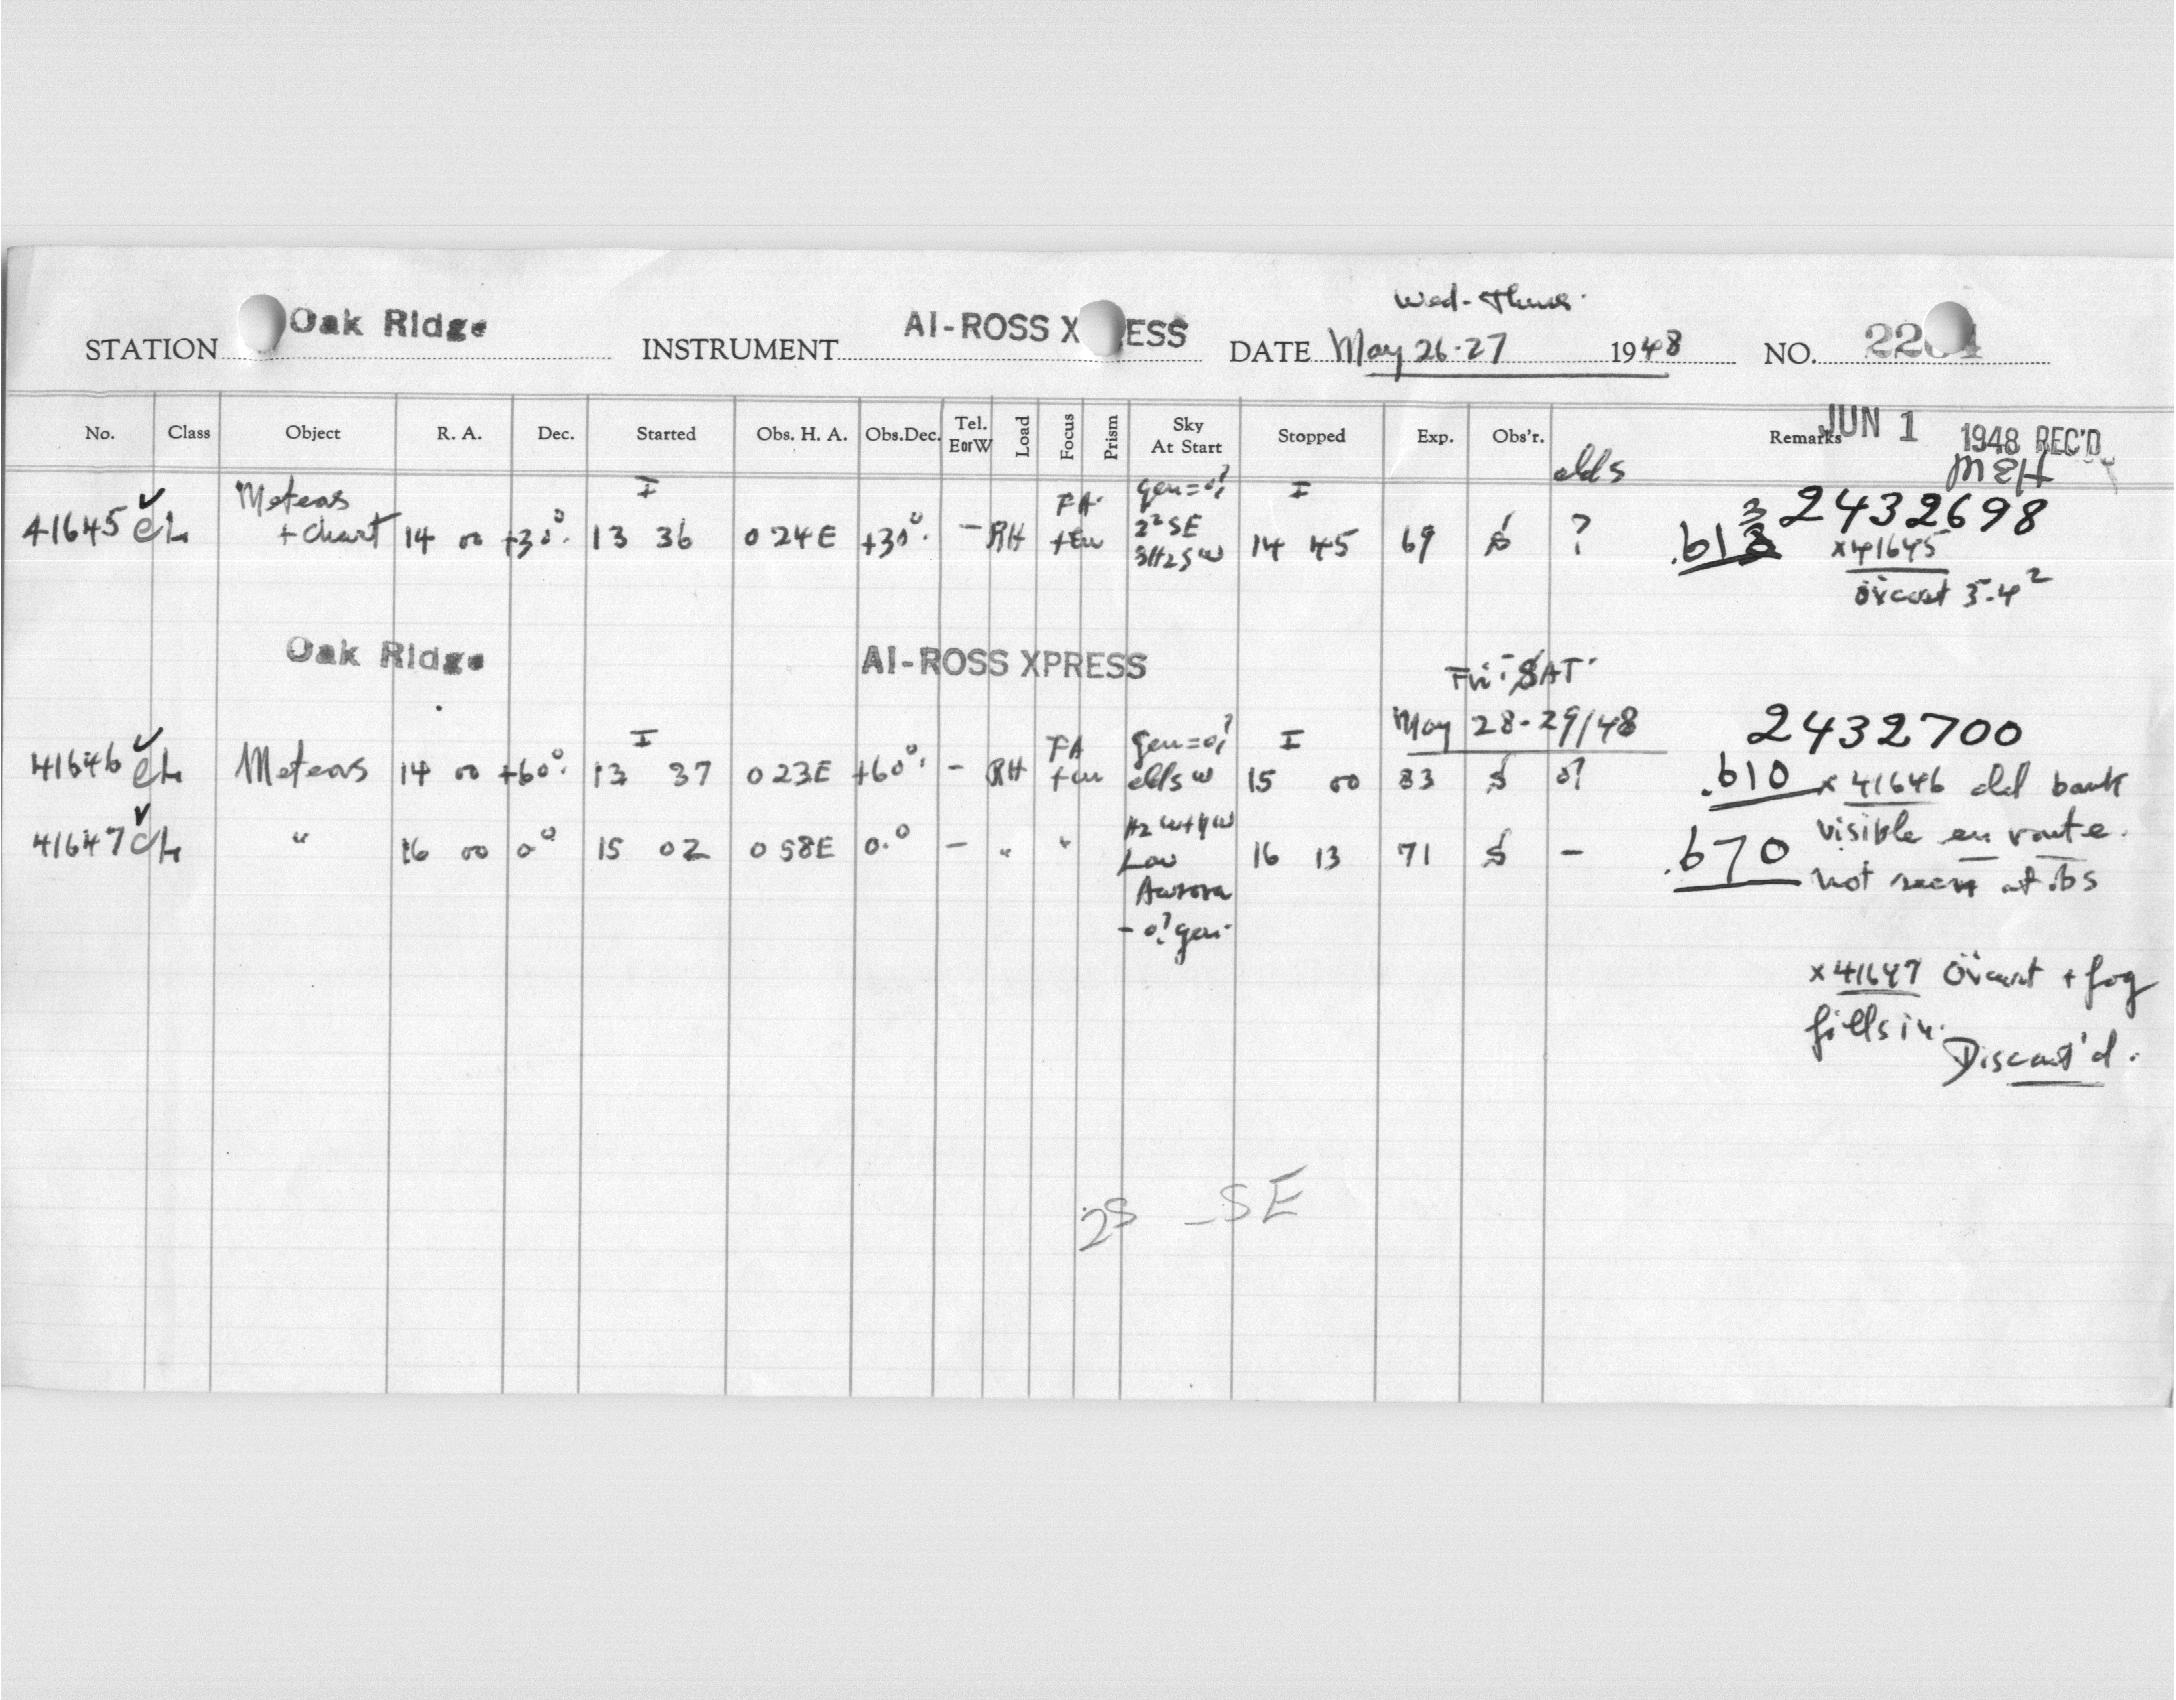 Wed-Thurs.
STATION Oak Ridge INSTRUMENT AI-ROSS X ESS DATE May 26-27 1948 NO. 22 4
No. Class Object R. A. Dec. Started Obs. H. A. Obs.Dec. Tel. E or W Load Focus Prism Sky At Start Stopped Exp. Obs'r. Remarks
JUN 1 1948 REC'D
clds MEH
Meteors I FA gen=0? I 3 2432698
41645 + chart 14 00 +30°. 13 36 0 24E +30°. - RH 2² SE 14 45 69 ? .613 x 41645
ovcast 3-4²
Oak Ridge AI-ROSS XPRESS Fri-SAT.
May 28-29/48
I FA gen=0? I 2432700
41646 Meteors 14 00 +60°. 13 37 0 23E +60°. - RH clds w 15 00 83 0? .610 x 41646 cld bank
41647 " 16 00 0° 15 02 0 58E 0.° - " " Low 16 13 71 - .670 visible en route.
Aurora not seen at obs
- 0? gen.
x 41647 Ovcast + fog
fills in.
Discont'd.
2S - SE